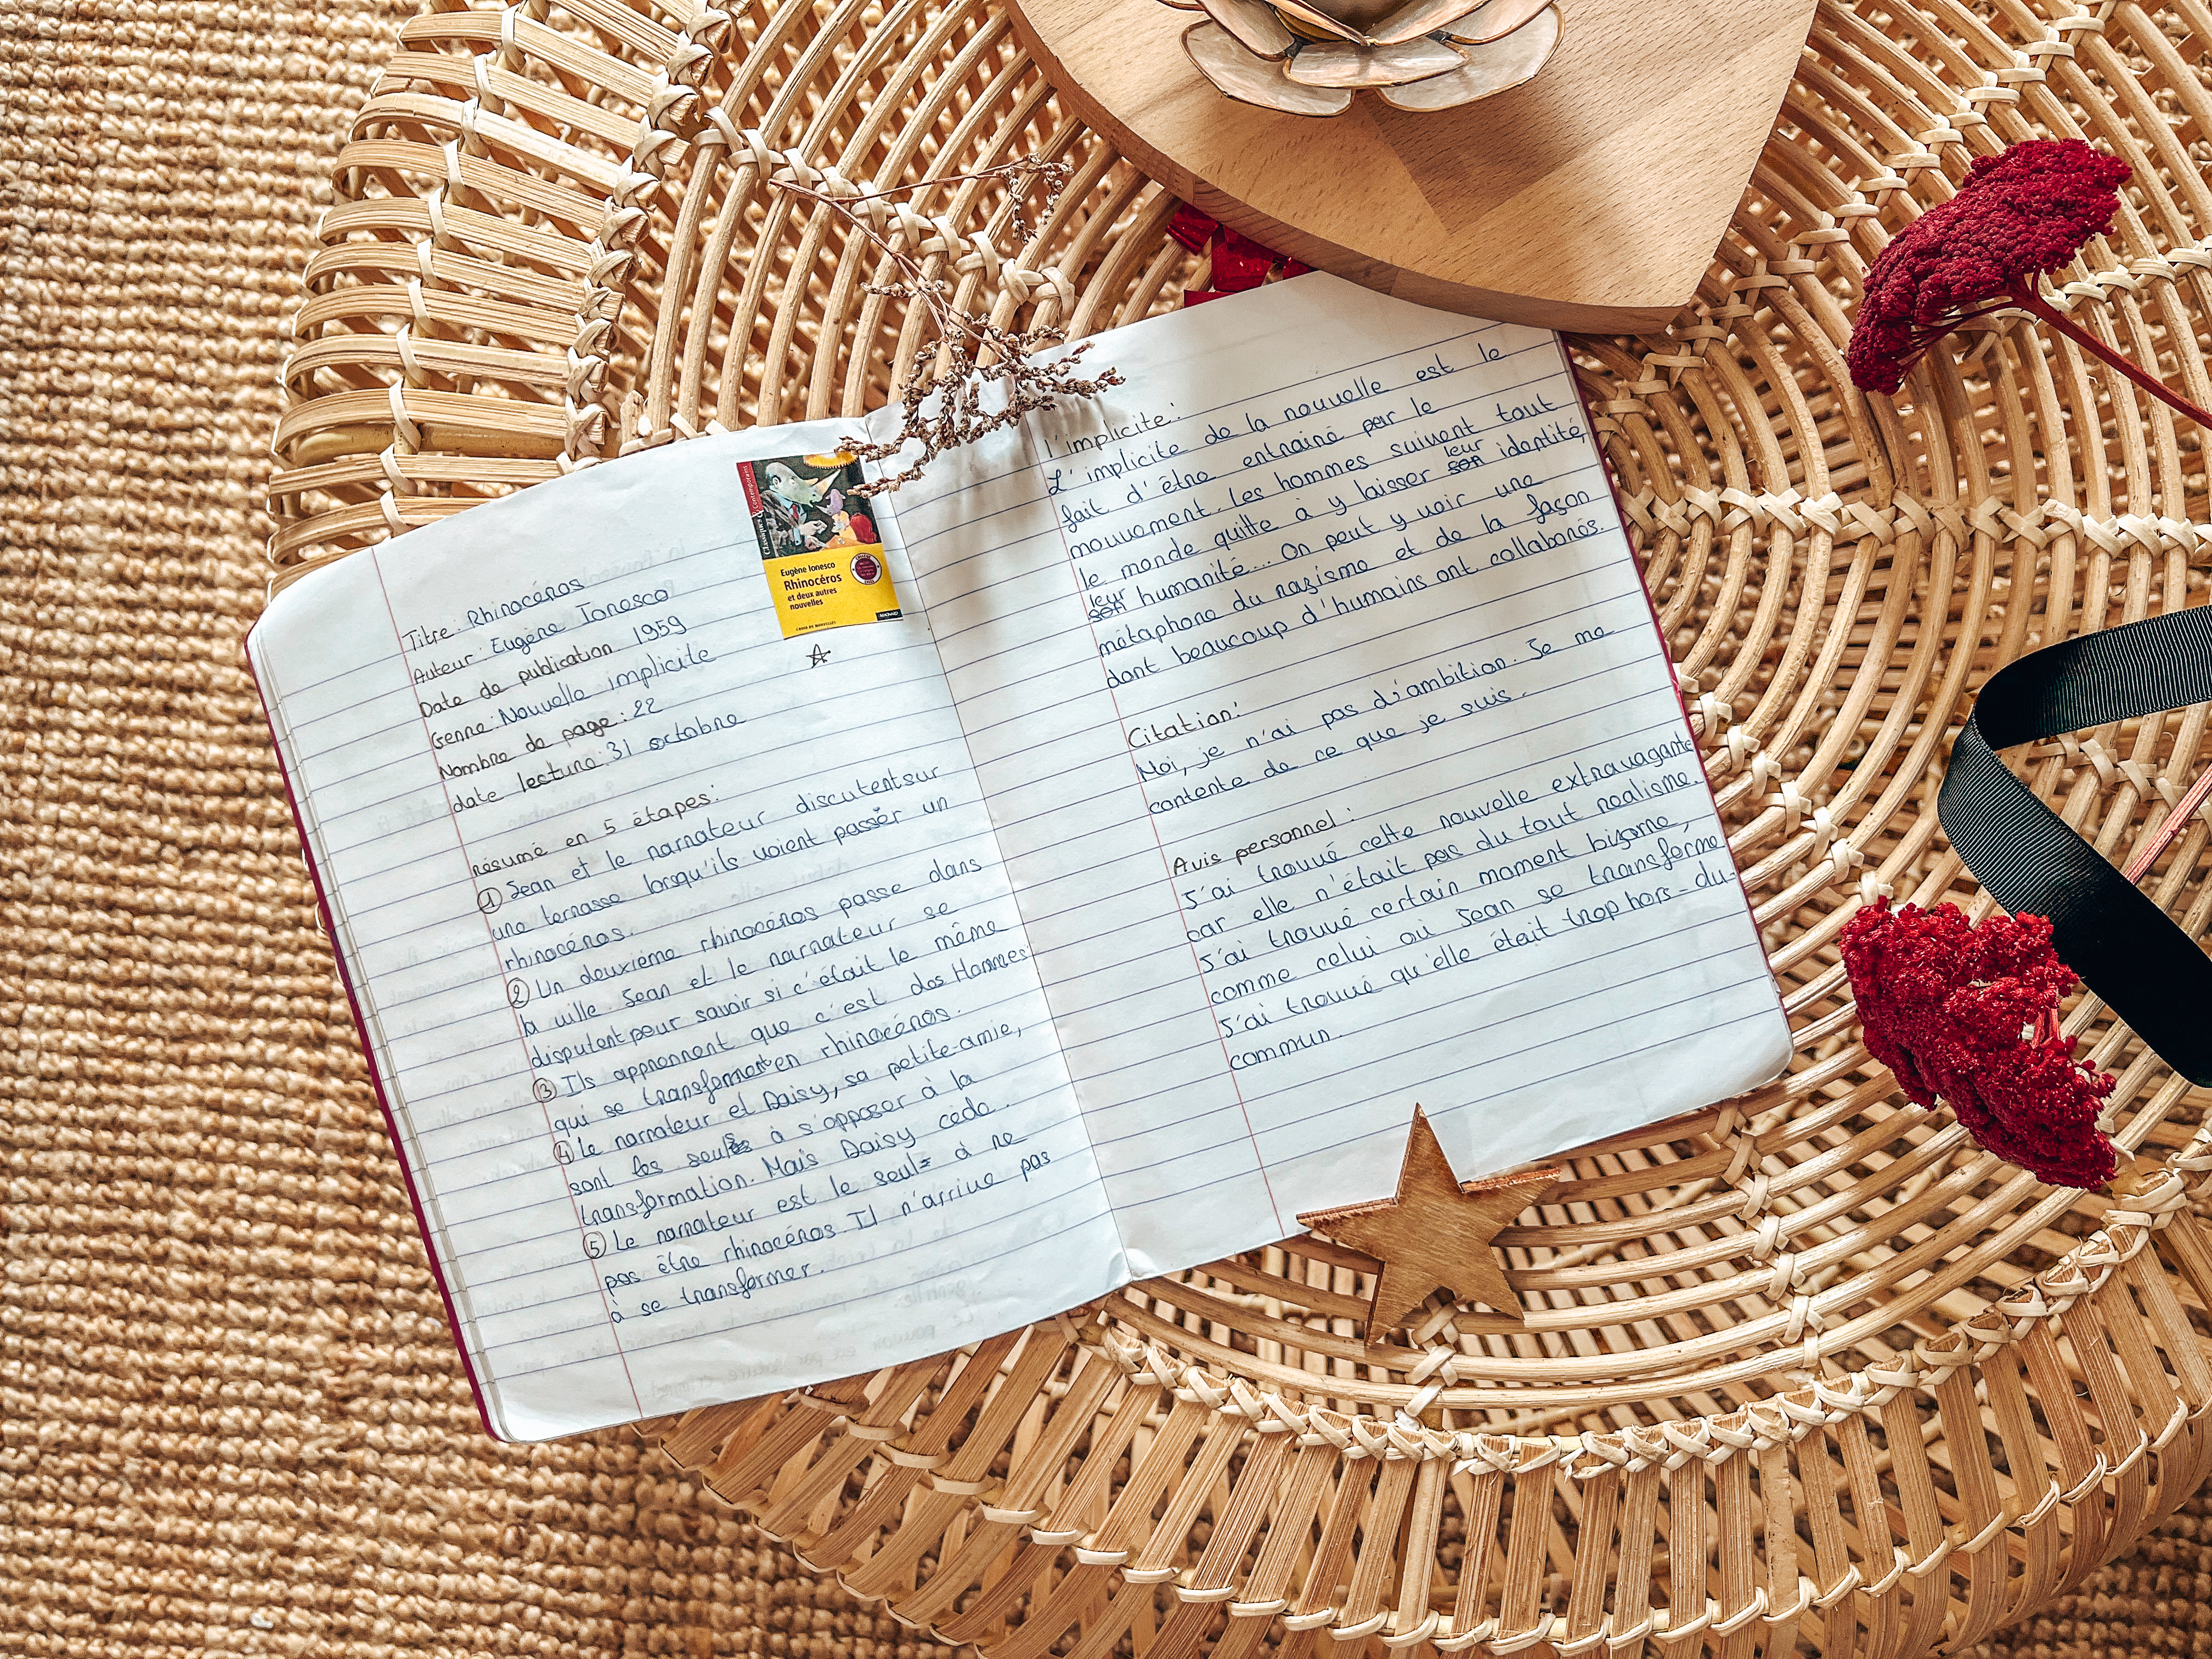 Classiques & Contemporains
Eugène Ionesco
Rhinocéros
et deux autres
nouvelles
Titre: Rhinocéros
Auteur: Eugène Ionesco
Date de publication 1959
Genre: Nouvelle implicite
Nombre de page: 22
date lecture: 31 octobre
résumé en 5 étapes:
① Jean et le narrateur discutent sur
une terrasse lorsqu'ils voient passer un
rhinocéros.
② Un deuxième rhinocéros passe dans
la ville. Jean et le narrateur se
disputent pour savoir si c'était le même
③ Ils apprennent que c'est des Hommes
qui se transforment en rhinocéros.
④ Le narrateur et Daisy, sa petite-amie,
sont les seuls à s'opposer à la
transformation. Mais Daisy cède.
⑤ Le narrateur est le seul à ne
pas être rhinocéros. Il n'arrive pas
à se transformer.
l'implicite:
L'implicite de la nouvelle est le
fait d'être entrainé par le
mouvement. Les hommes suivent tout
le monde quitte à y laisser leur identité,
leur humanité... On peut y voir une
métaphore du nazisme et de la façon
dont beaucoup d'humains ont collaborés.
Citation:
Moi, je n'ai pas d'ambition. Je me
contente de ce que je suis.
Avis personnel:
J'ai trouvé cette nouvelle extravagante
car elle n'était pas du tout realisme.
J'ai trouvé certain moment bizarre,
comme celui où Jean se transforme
J'ai trouvé qu'elle était trop hors-du-
commun.